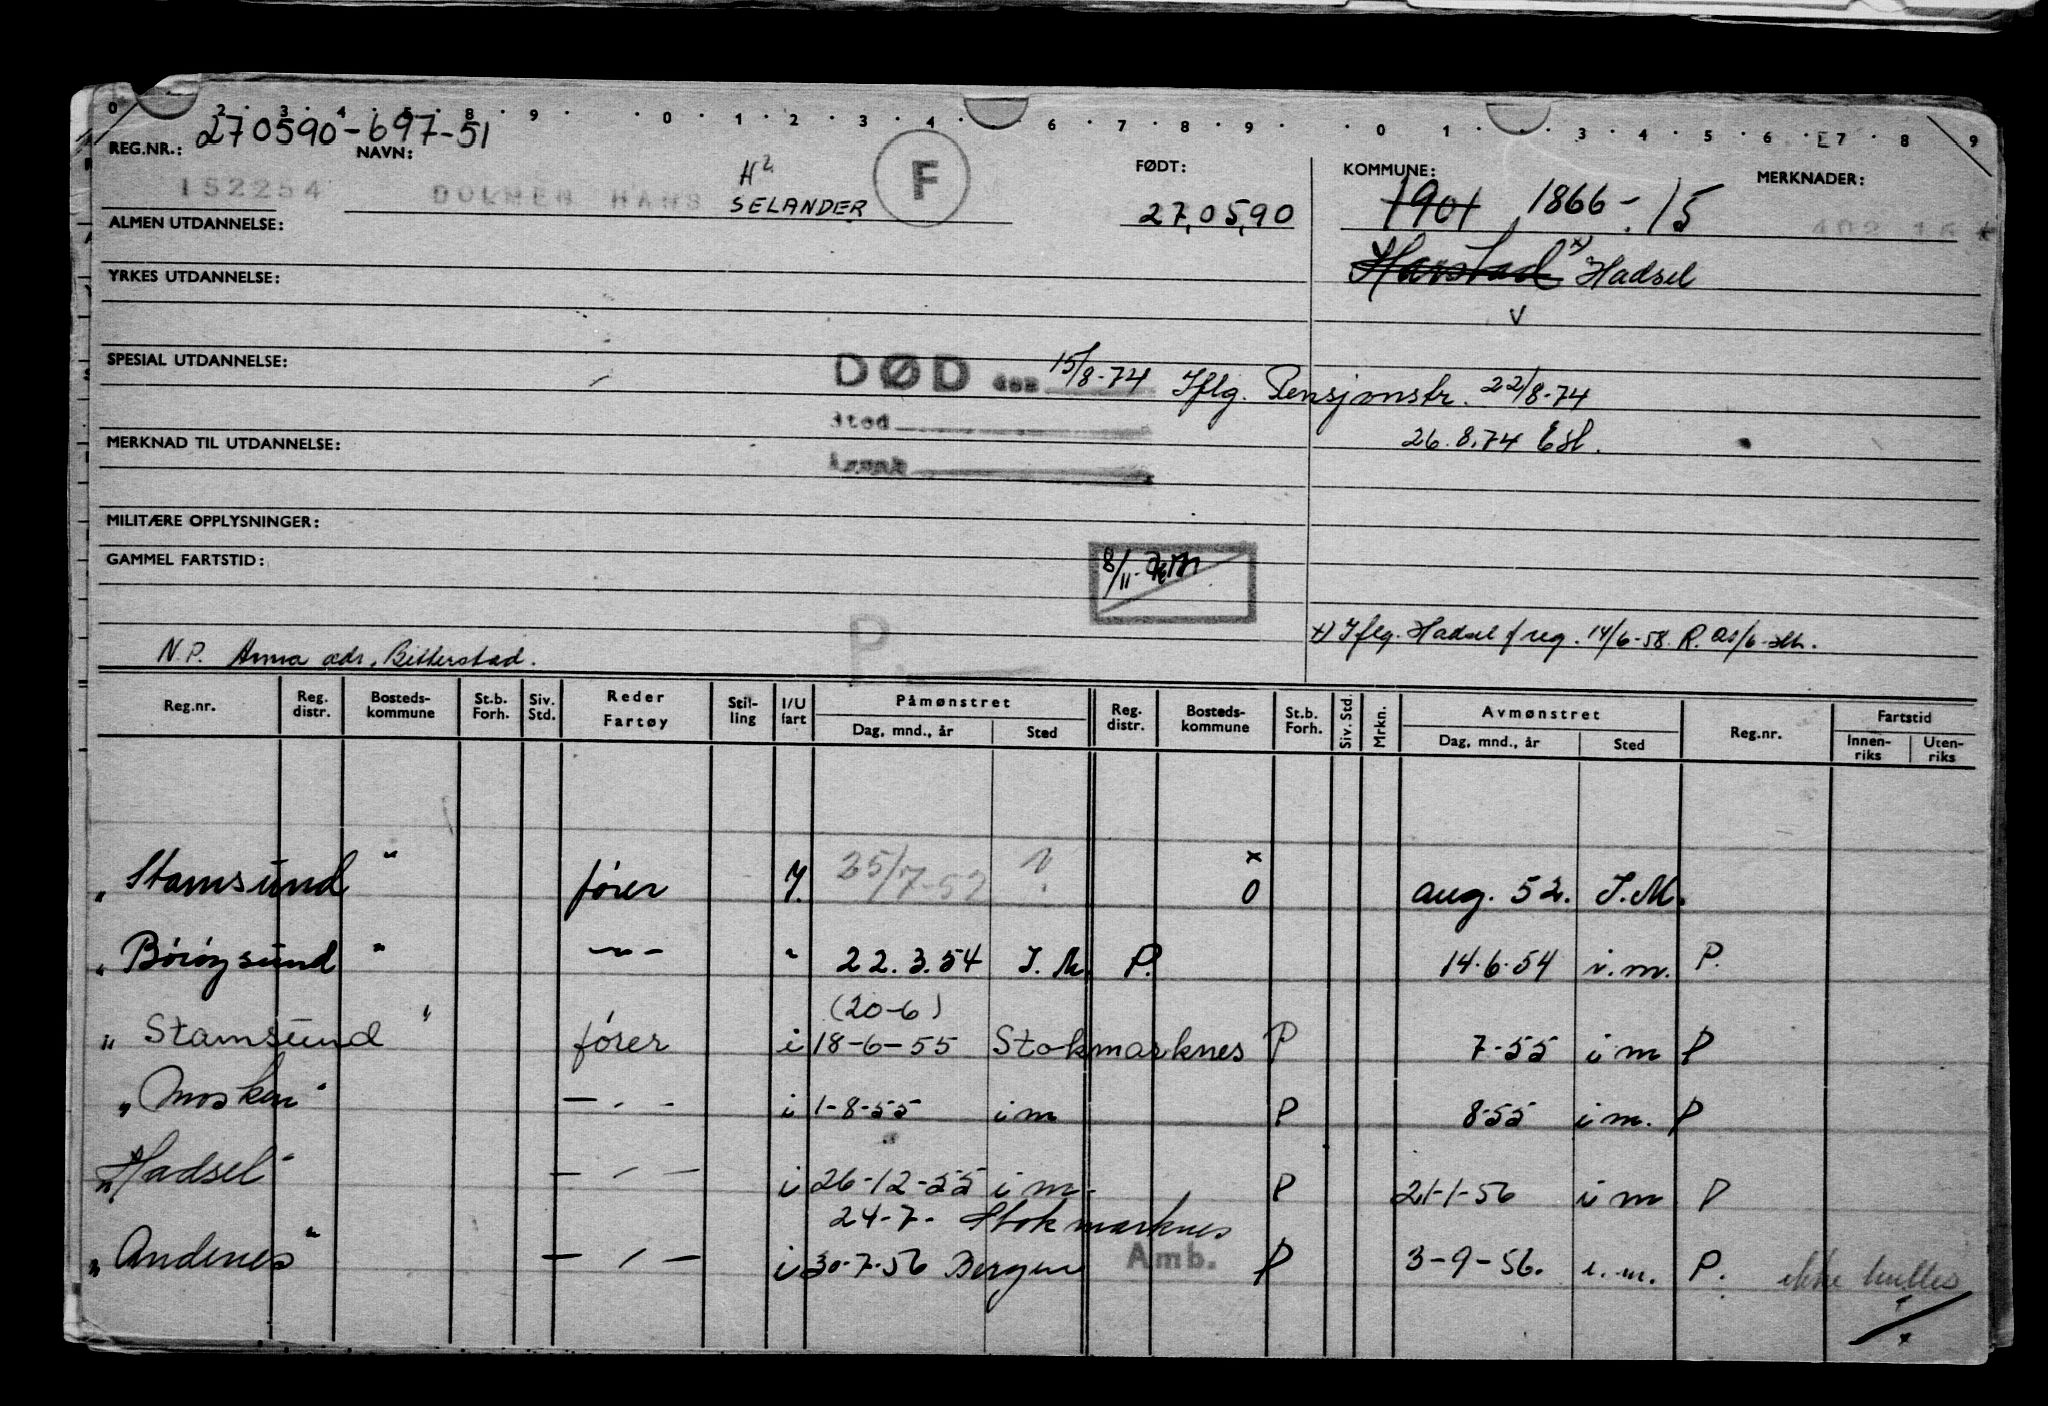 0 2 3 4 5 8 9 0 1 2 3 4 6 7 8 9 0 1 3 4 5 6 E7 8 9
REG.NR.: 270590-697-51 NAVN: H2 F FØDT: KOMMUNE: MERKNADER:
152254 DOKMEN HANS SELANDER 27,05,90 1901 1866-15
ALMEN UTDANNELSE:
Harstad x) Hadsel
YRKES UTDANNELSE:
V
SPESIAL UTDANNELSE: DØD den 15/8-74 Iflg. Pensjonstr. 22/8-74
sted
26.8.74
MERKNAD TIL UTDANNELSE:
MILITÆRE OPPLYSNINGER:
GAMMEL FARTSTID: 8/11-
P.
x) Iflg. Hadsel f reg. 14/6-58. R.
N.P. Anna adr. Bitterstad.
Reg.nr. Reg. distr. Bosteds-kommune St.b. Forh. Siv. Std. Reder Fartøy Stil-ling I/U fart Påmønstret Reg. distr. Bosteds-kommune St.b. Forh. Siv. Std. Mrkn. Avmønstret Reg.nr. Fartstid
Dag, mnd., år Sted Dag, mnd., år Sted Innen-riks Uten-riks
x
„Stamsund" fører I. 25/7-52 ? 0 aug. 52. I.M.
„Børøysund" —"— " 22.3.54 I.M. P. 14.6.54 i.m. P.
(20-6)
„Stamsund" fører i 18-6-55 Stokmarknes P 7-55 i m P
„Mosken" — " — i 1-8-55 i m P 8-55 i m. P
„Hadsel" — " — i 26-12-55 i m. P 21-1-56 i m P
24-7- Stokmarknes
„Andenes" — " — i 30-7-56 Bergen Amb. P 3-9-56. i.m. P. ikke hulles